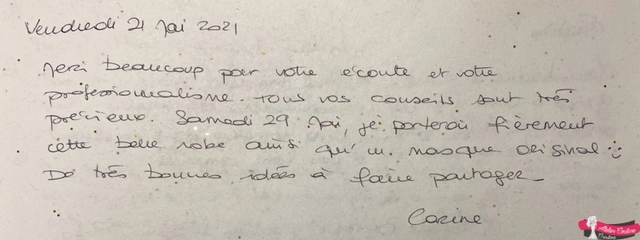 Vendredi 21 Mai 2021
Merci beaucoup pour votre écoute et votre
professionnalisme. Tous vos conseils sont très
précieux. Samedi 29 Mai, je porterai fièrement
cette belle robe ainsi qu'un masque original :)
De très bonnes idées à faire partager_
Corine
Atelier